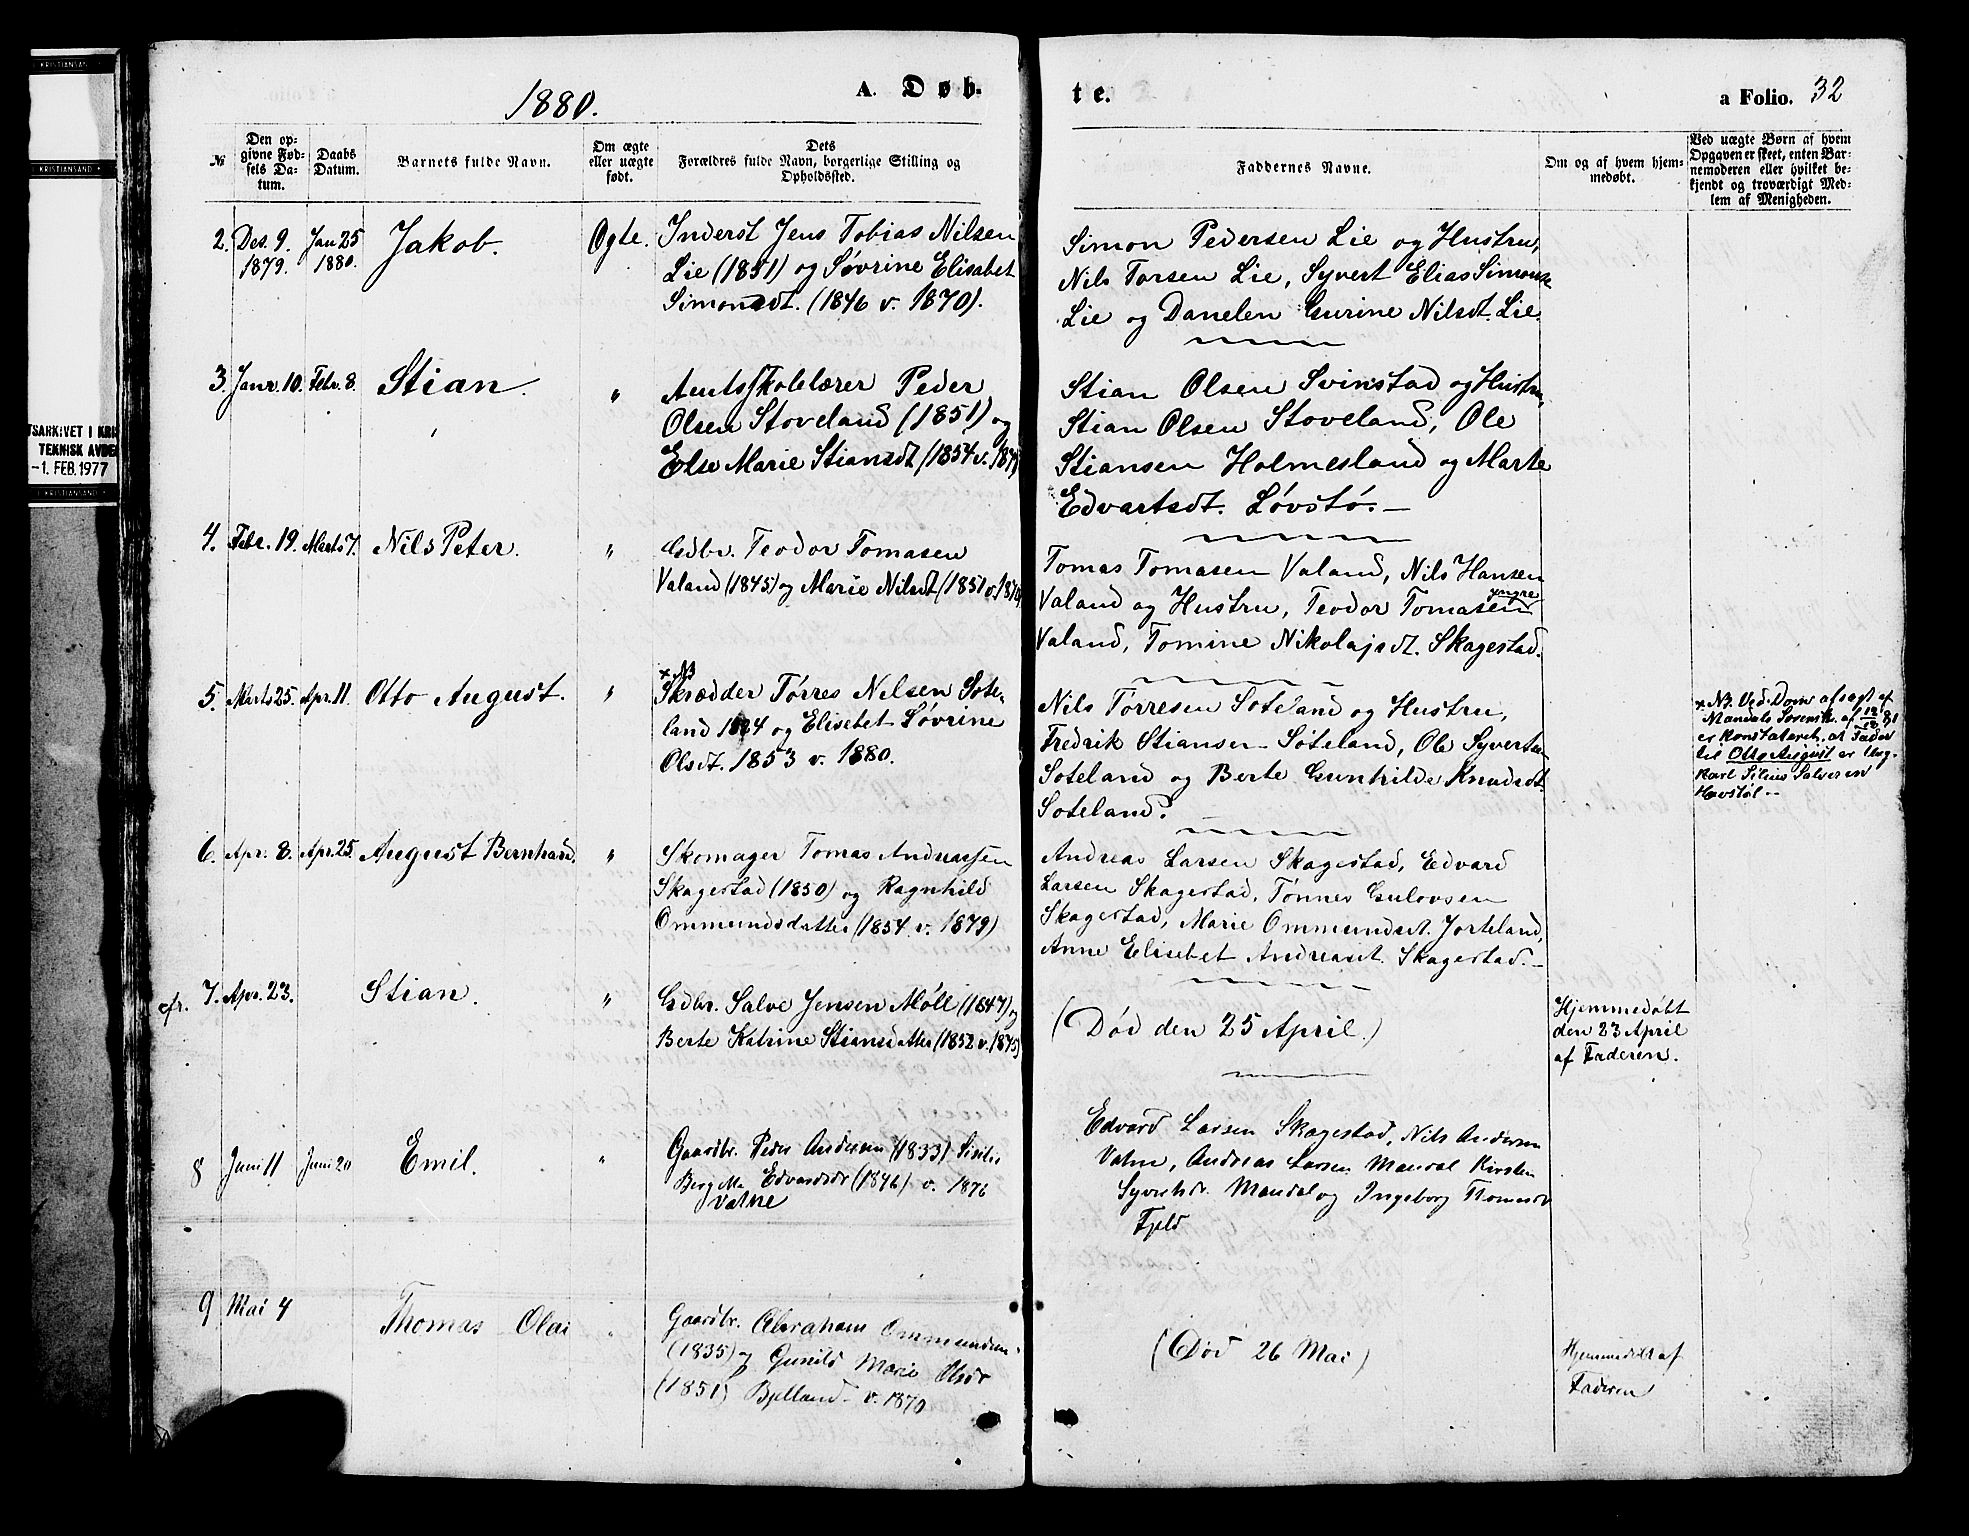 KRISTIANSAND
KRISTIANSAND
TSARKIVET I KRIS
TEKNISK AVDE
-1. FEB. 1977
KRISTIANSAND
1880.
A. Døb-
te.
a Folio. 32
№
Den opgivne Fødsels Datum.
Daabs Datum.
Barnets fulde Navn.
Om ægte eller uægte født.
Dets Forældres fulde Navn, borgerlige Stilling og Opholdssted.
Faddernes Navne.
Om og af hvem hjemmedøbt.
Ved uægte Børn af hvem Opgaven er skeet, enten Barnemoderen eller hvilket bekjendt og troværdigt Medlem af Menigheden.
2. Des. 9. 1879. Jan 25 1880. Jakob. Ægte.
Inderst Jens Tobias Nilsen
Lie (1851) og Søvrine Elisabet
Simonsdt. (1846 v. 1870).
Simon Pedersen Lie og Hustru,
Nils Torsen Lie, Syvert Elias Simons.
Lie og Danelen Gurine Nilsdt. Lie.
3. Janr. 10. Febr. 8. Stian. "
Amtsskolelærer Peder
Olsen Stoveland (1851) og
Else Marie Stiansdt (1854 v.
Stian Olsen Svinstad og Hustru,
Stian Olsen Stoveland, Ole
Stiansen Holmesland og Marte
Edvartsdt. Løvstø. —
4. Febr. 19. Marts 7. Nils Peter. "
Gdbr. Teodor Tomasen
Valand (1845) og Marie Nilsdt (1851 v.
Tomas Tomasen Valand, Nils Hansen
Valand og Hustru, Teodor Tomasen yngre
Valand, Tomine Nikolajsdt. Skagestad.
5. Marts 25. Apr. 11. Otto August. "
x NB
Skrædder Tørres Nilsen Sote-
land og Elisebet Søvrine
Olsdt. 1853 v. 1880.
Nils Tørresen Soteland og Hustru,
Fredrik Stiansen Søteland, Ole Syverts.
Soteland og Berte Gunhilde Knudsdt.
Soteland.
x NB. Ved Dom afsagt af
Mandals Sorensk. af 81
er konstateret, at Fader
til Otto August er Ung-
karl Salvesen
Havstøl. —
6. Apr. 8. Apr. 25. August Bernhard. "
Skomager Tomas Andreassen
Skagestad (1850) og Ragnhild
Ommundsdatter (1854 v. 1879)
Andreas Larsen Skagestad, Edvard
Larsen Skagestad, Tønnes Gulovsen
Skagestad, Marie Ommundsdt. Jorteland,
Anne Elisebet Andreasdt. Skagestad. —
cfr. 7. Apr. 23. Stian. "
Gdbr. Salve Jensen Møll (1847) og
Berte Katrine Stiansdatter (1852 v. 1875)
(Død den 25 April.)
Hjemmedøbt
den 23 April
af Faderen.
8 Juni 11 Juni 20 Emil. "
Gaardbr. Peder Andersen (1833)
Edvardsdr (1846) v. 1876
Valne
Edvard Larsen Skagestad, Nils Andersen
Valne, Andreas Larsen Mandal Kirsten
Syvertsdr. Mandal og Ingeborg Thomesdr
Fjeld
9 Mai 4 Thomas Olai "
Gaardbr. Abraham Ommundsen
(1835) og Gunild Marie Olsdr
(1851) Bjelland v. 1870
(Død 26 Mai)
Hjemmedøbt af
Faderen